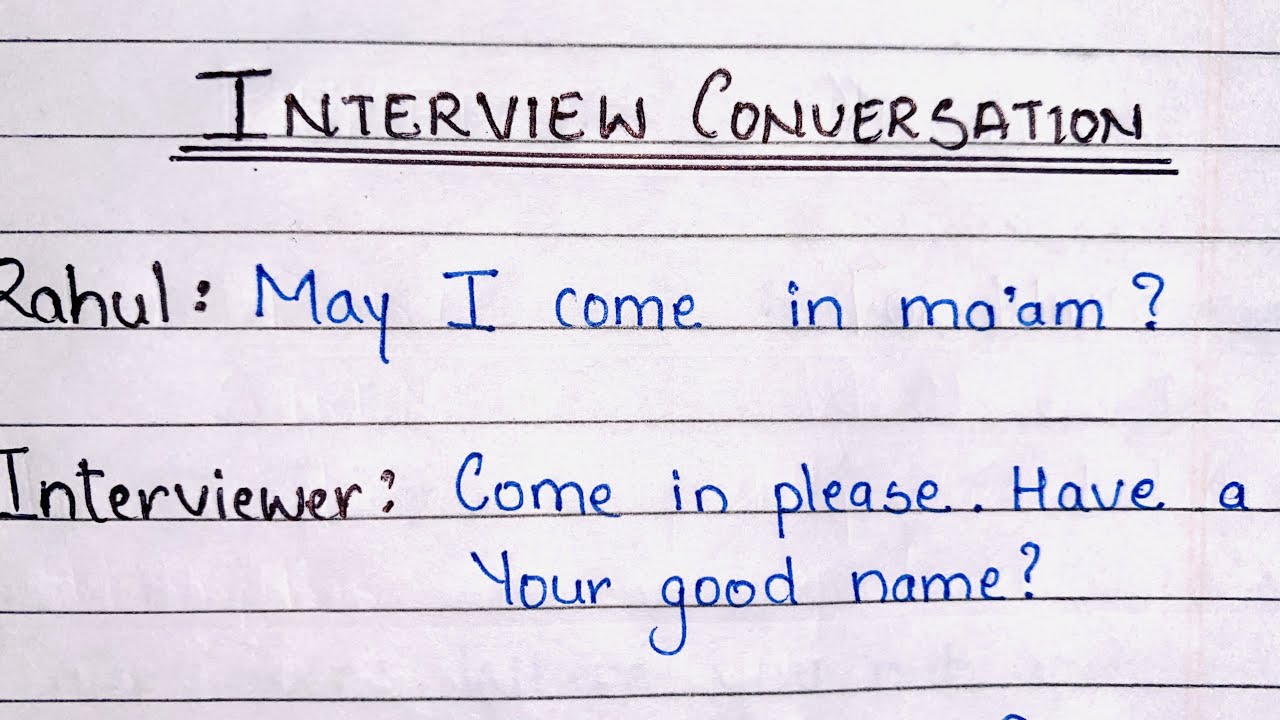 INTERVIEW CONVERSATION
Rahul: May I come in ma'am?
Interviewer: Come in please. Have a
Your good name?